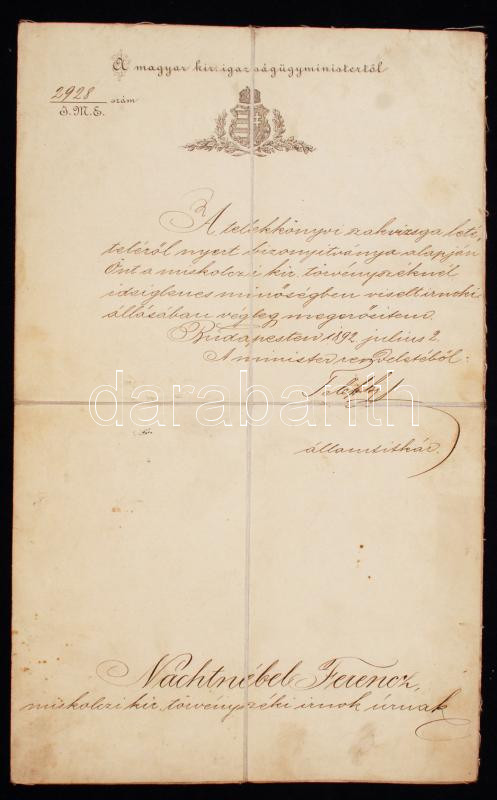 A magyar kir. igazságügyministertől
2928 szám
I. M. E.
A telekkönyvi szakvizsga leté-
teléről nyert bizonyitványa alapján
Önt a miskolczi kir. törvényszéknél
ideiglenes minőségben viselt irnoki
állásában végleg megerősitem.
Budapesten 1892 július 2.
A minister rendeletéből:
államtitkár.
darabanth
Nachtnébel Ferencz,
miskolczi kir. törvényszéki irnok úrnak